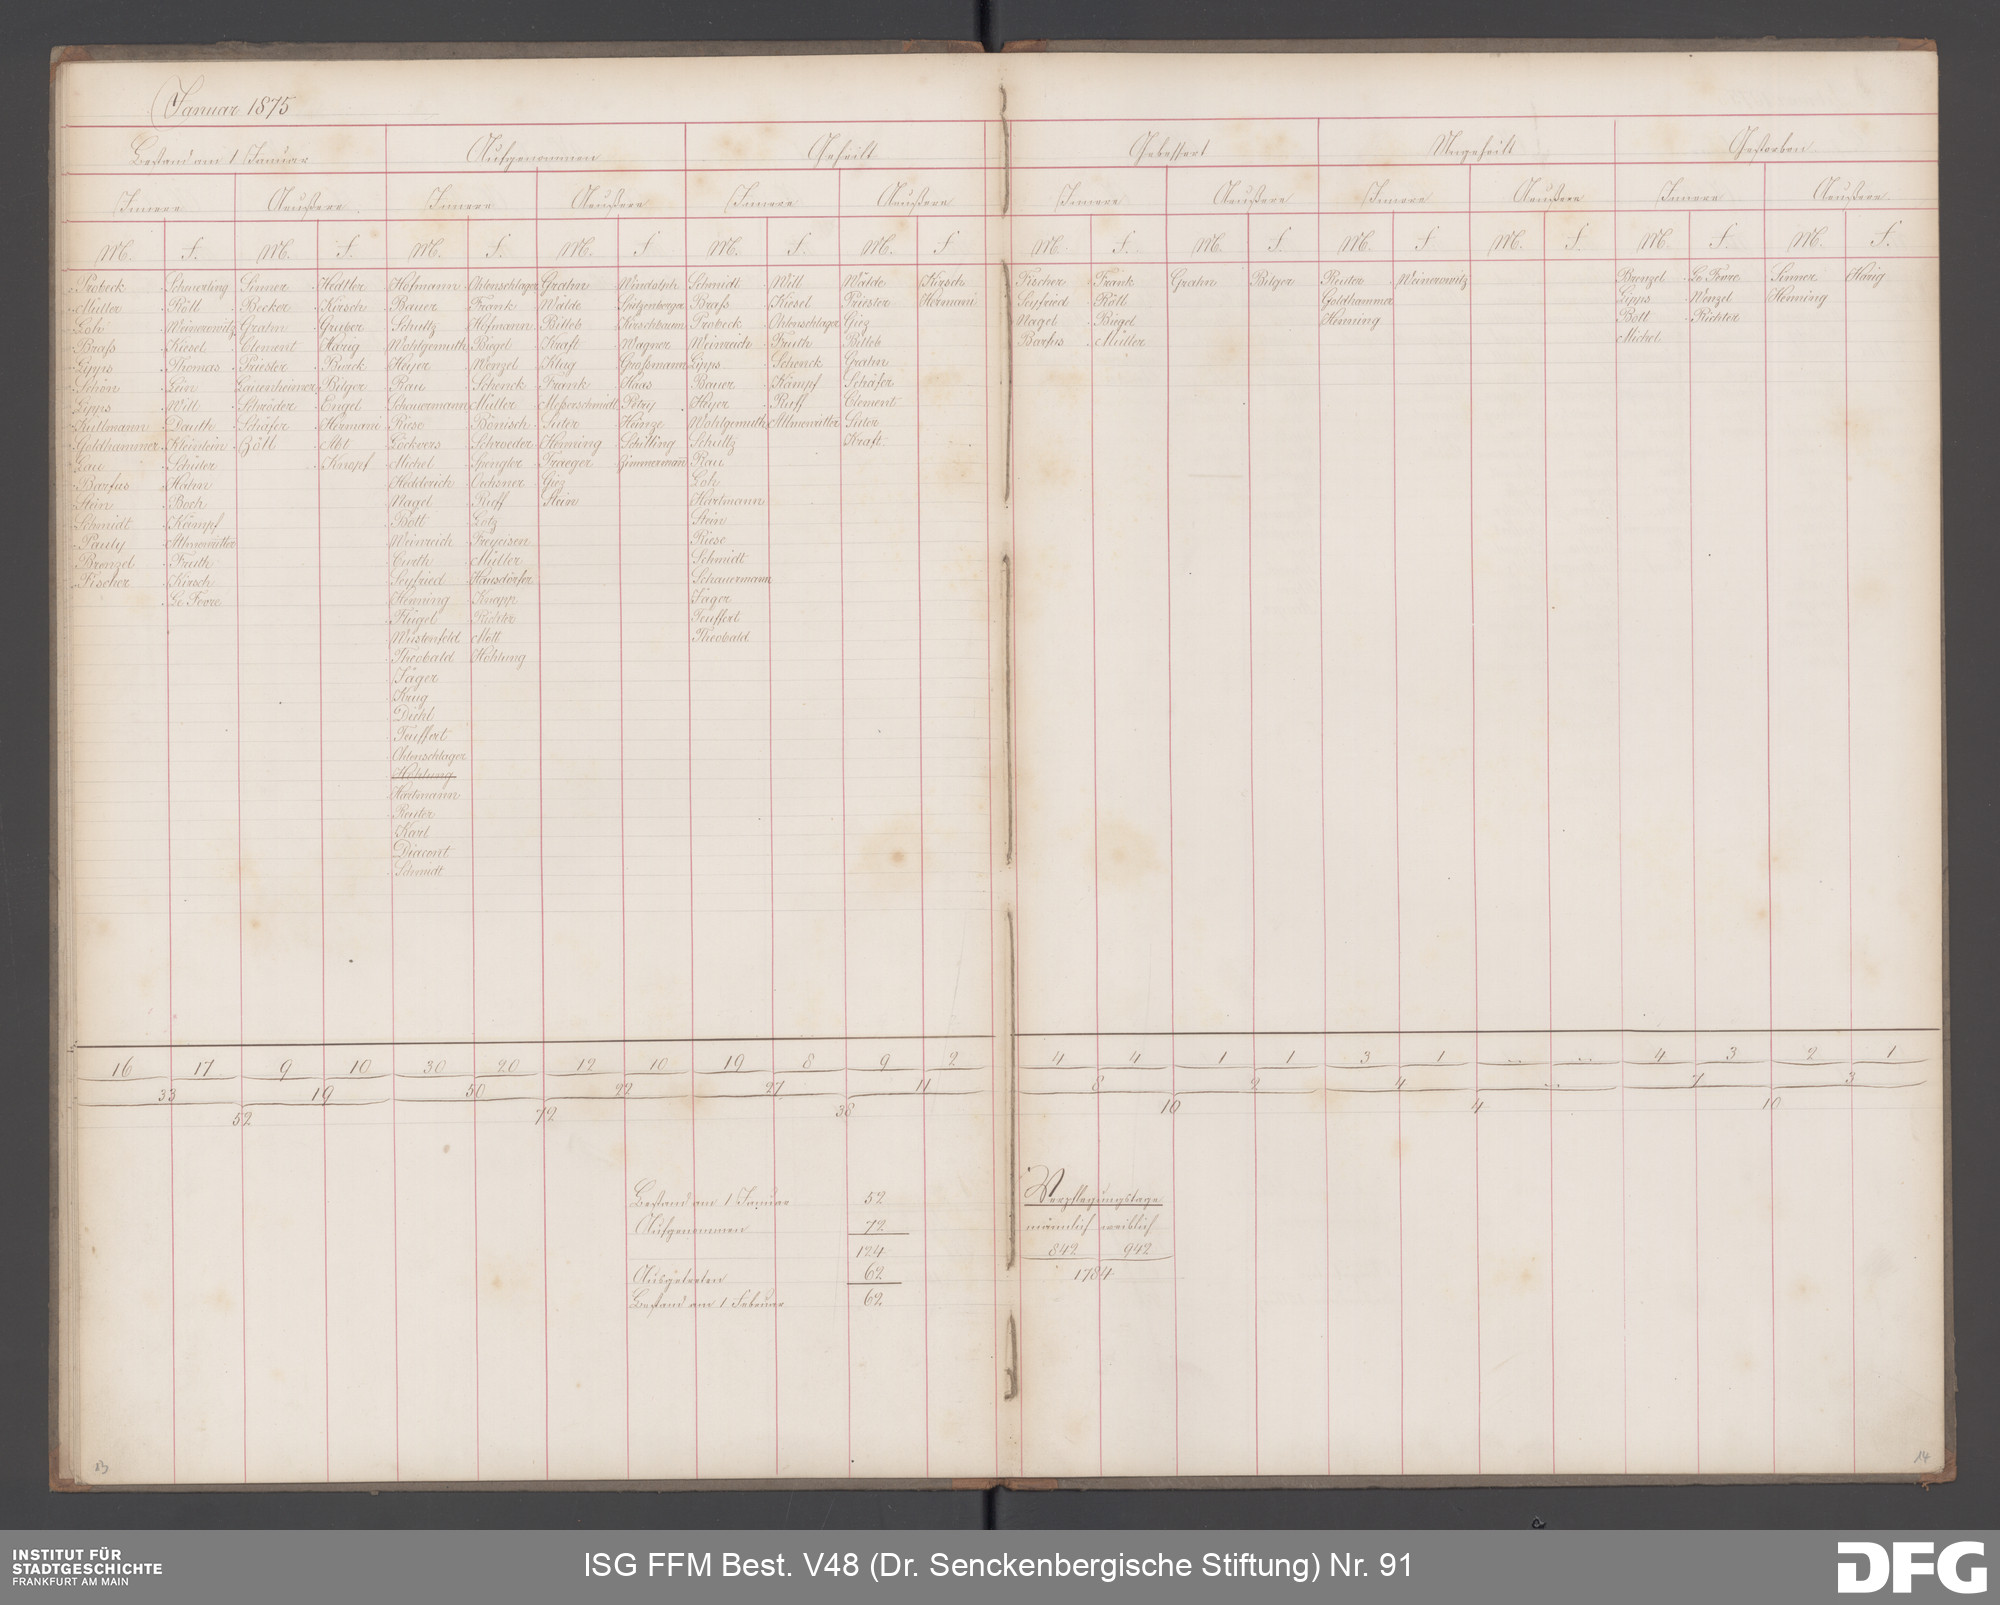 Januar 1875
Bestand am 1 Januar Aufgenommen Geheilt Gebessert Ungeheilt Gestorben
Innere Aeußere Innere Aeußere Innere Aeußere Innere Aeußere Innere Aeußere Innere Aeußere
M. F. M. F. M. F. M. F. M. F. M. F. M. F. M. F. M. F. M. F. M. F. M. F.
Probeck Scheuerling Sinner Hedtler Hofmann Ohlenschlager Grahn Windolph Schmidt Will Wälde Kirsch Fischer Frank Grahn Bilger Reuter Weinerowitz Brenzel Le Fevre Sinner Harig
Müller Röll Becker Kirsch Bauer Frank Wälde Spitzenberger Braß Kiesel Priester Hermani Seyfried Röll Goldhammer Lipps Wenzel Henning
Loh Weinerowitz Grahn Gruber Schultz Hofmann Billeb Kirschbaum Probeck Ohlenschlager Giez Nagel Biegel Henning Bott Richter
Braß Kiesel Clement Harig Wohlgemuth Biegel Kraft Wagner Weinreich Fruth Billeb Barfus Müller Michel
Lipps Thomas Priester Burck Heyer Wenzel Klug Großmann Lipps Schenck Grahn
Schön Lein Bilger Rau Schenck Frank Haas Bauer Kämpf Schäfer
Lipps Will Schröder Engel Schauermann Müller Messerschmidt Petry Heyer Ruff Clement
Kullmann Dauth Schäfer Hermani Riese Bönisch Suter Heinze Wohlgemuth Allmeritter Suter
Goldhammer Kleinlein Zöll Abt Görkers Schroeder Henning Schilling Schultz Kraft
Lau Schuler Knapf Michel Spengler Traeger Zimmermann Rau
Barfus Hahn Hedderich Oechsner Giez Loh
Stein Boch Nagel Ruff Stein Hartmann
Schmidt Kämpf Bott Götz Stein
Pauly Allmeritter Weinreich Freyeisen Riese
Brenzel Fruth Curth Müller Schmidt
Fischer Kirsch Seyfried Hausdörfer Schauermann
Le Fevre Henning Knapp Jäger
Flügel Richter Teuffert
Wüstenfeld Mött Theobald
Theobald Höhlung
Jäger
Krug
Diehl
Teuffert
Ohlenschlager
Höhlung
Hartmann
Reuter
Karl
Diacont
Schmidt
16 17 9 10 30 20 12 10 19 8 9 2 4 4 1 1 3 1 ... ... 4 3 2 1
33 19 50 22 27 11 8 2 4 ... 7 3
52 72 38 10 4 10
Bestand am 1 Januar 52
Aufgenommen 72
124
Ausgetreten 62
Bestand am 1 Februar 62
Verpflegungstage
männlich weiblich
842 942
1784
13
14
INSTITUT FÜR
STADTGESCHICHTE
FRANKFURT AM MAIN
ISG FFM Best. V48 (Dr. Senckenbergische Stiftung) Nr. 91
DFG